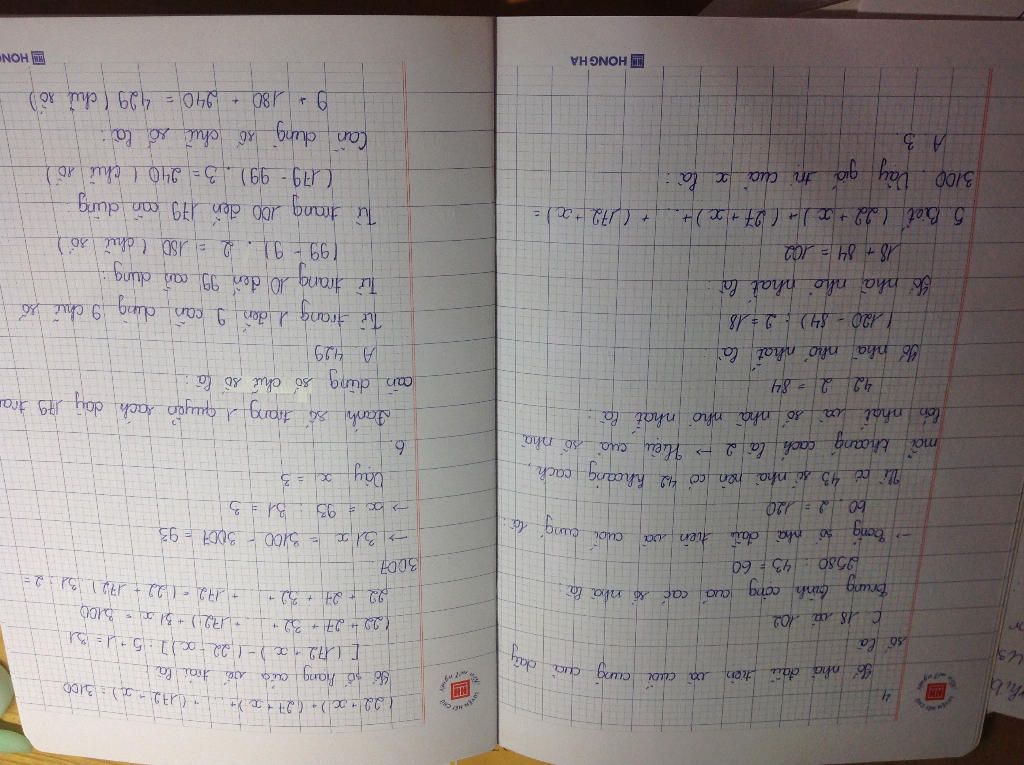 LUYỆN NÉT CHỮ
RÈN NẾT NGƯỜI
4
Số nhà đầu tiên và cuối cùng của dãy
số là
C 18 và 102
Trung bình cộng của các số nhà là
2580 : 43 = 60
→ Tổng số nhà đầu tiên và cuối cùng là:
60 . 2 = 120
Vì có 43 số nhà nên có 42 khoảng cách,
mỗi khoảng cách là 2 → Hiệu của số nhà
lớn nhất và số nhà nhỏ nhất là :
42 . 2 = 84
Số nhà nhỏ nhất là:
(120 - 84) : 2 = 18
Số nhà nhỏ nhất là :
18 + 84 = 102
5 Biết (22 + x) + (27 + x) + ... + (172 + x) =
3100 . Vậy giá trị của x là :
A 3
HONG HA
LUYỆN NÉT CHỮ
RÈN NẾT NGƯỜI
(22 + x) + (27 + x) + ... + (172 + x) = 3100
Số số hạng của vế trái là
[(172 + x) - (22 - x)] : 5 + 1 = 31
(22 + 27 + 32 + ... + 172) + 31x = 3100
22 + 27 + 32 + ... + 172 = (22 + 172) . 31 : 2 =
3007
→ 31x = 3100 - 3007 = 93
→ x = 93 : 31 = 3
Vậy x = 3
6.
Đánh số trang 1 quyển sách dày 179 tra
cần dùng số chữ số là :
A. 429
Từ trang 1 đến 9 cần dùng 9 chữ số
Từ trang 10 đến 99 cần dùng :
(99 - 9) . 2 = 180 (chữ số)
Từ trang 100 đến 179 cần dùng
(179 - 99) . 3 = 240 (chữ số)
Cần dùng số chữ số là :
9 + 180 + 240 = 429 (chữ số)
HONG